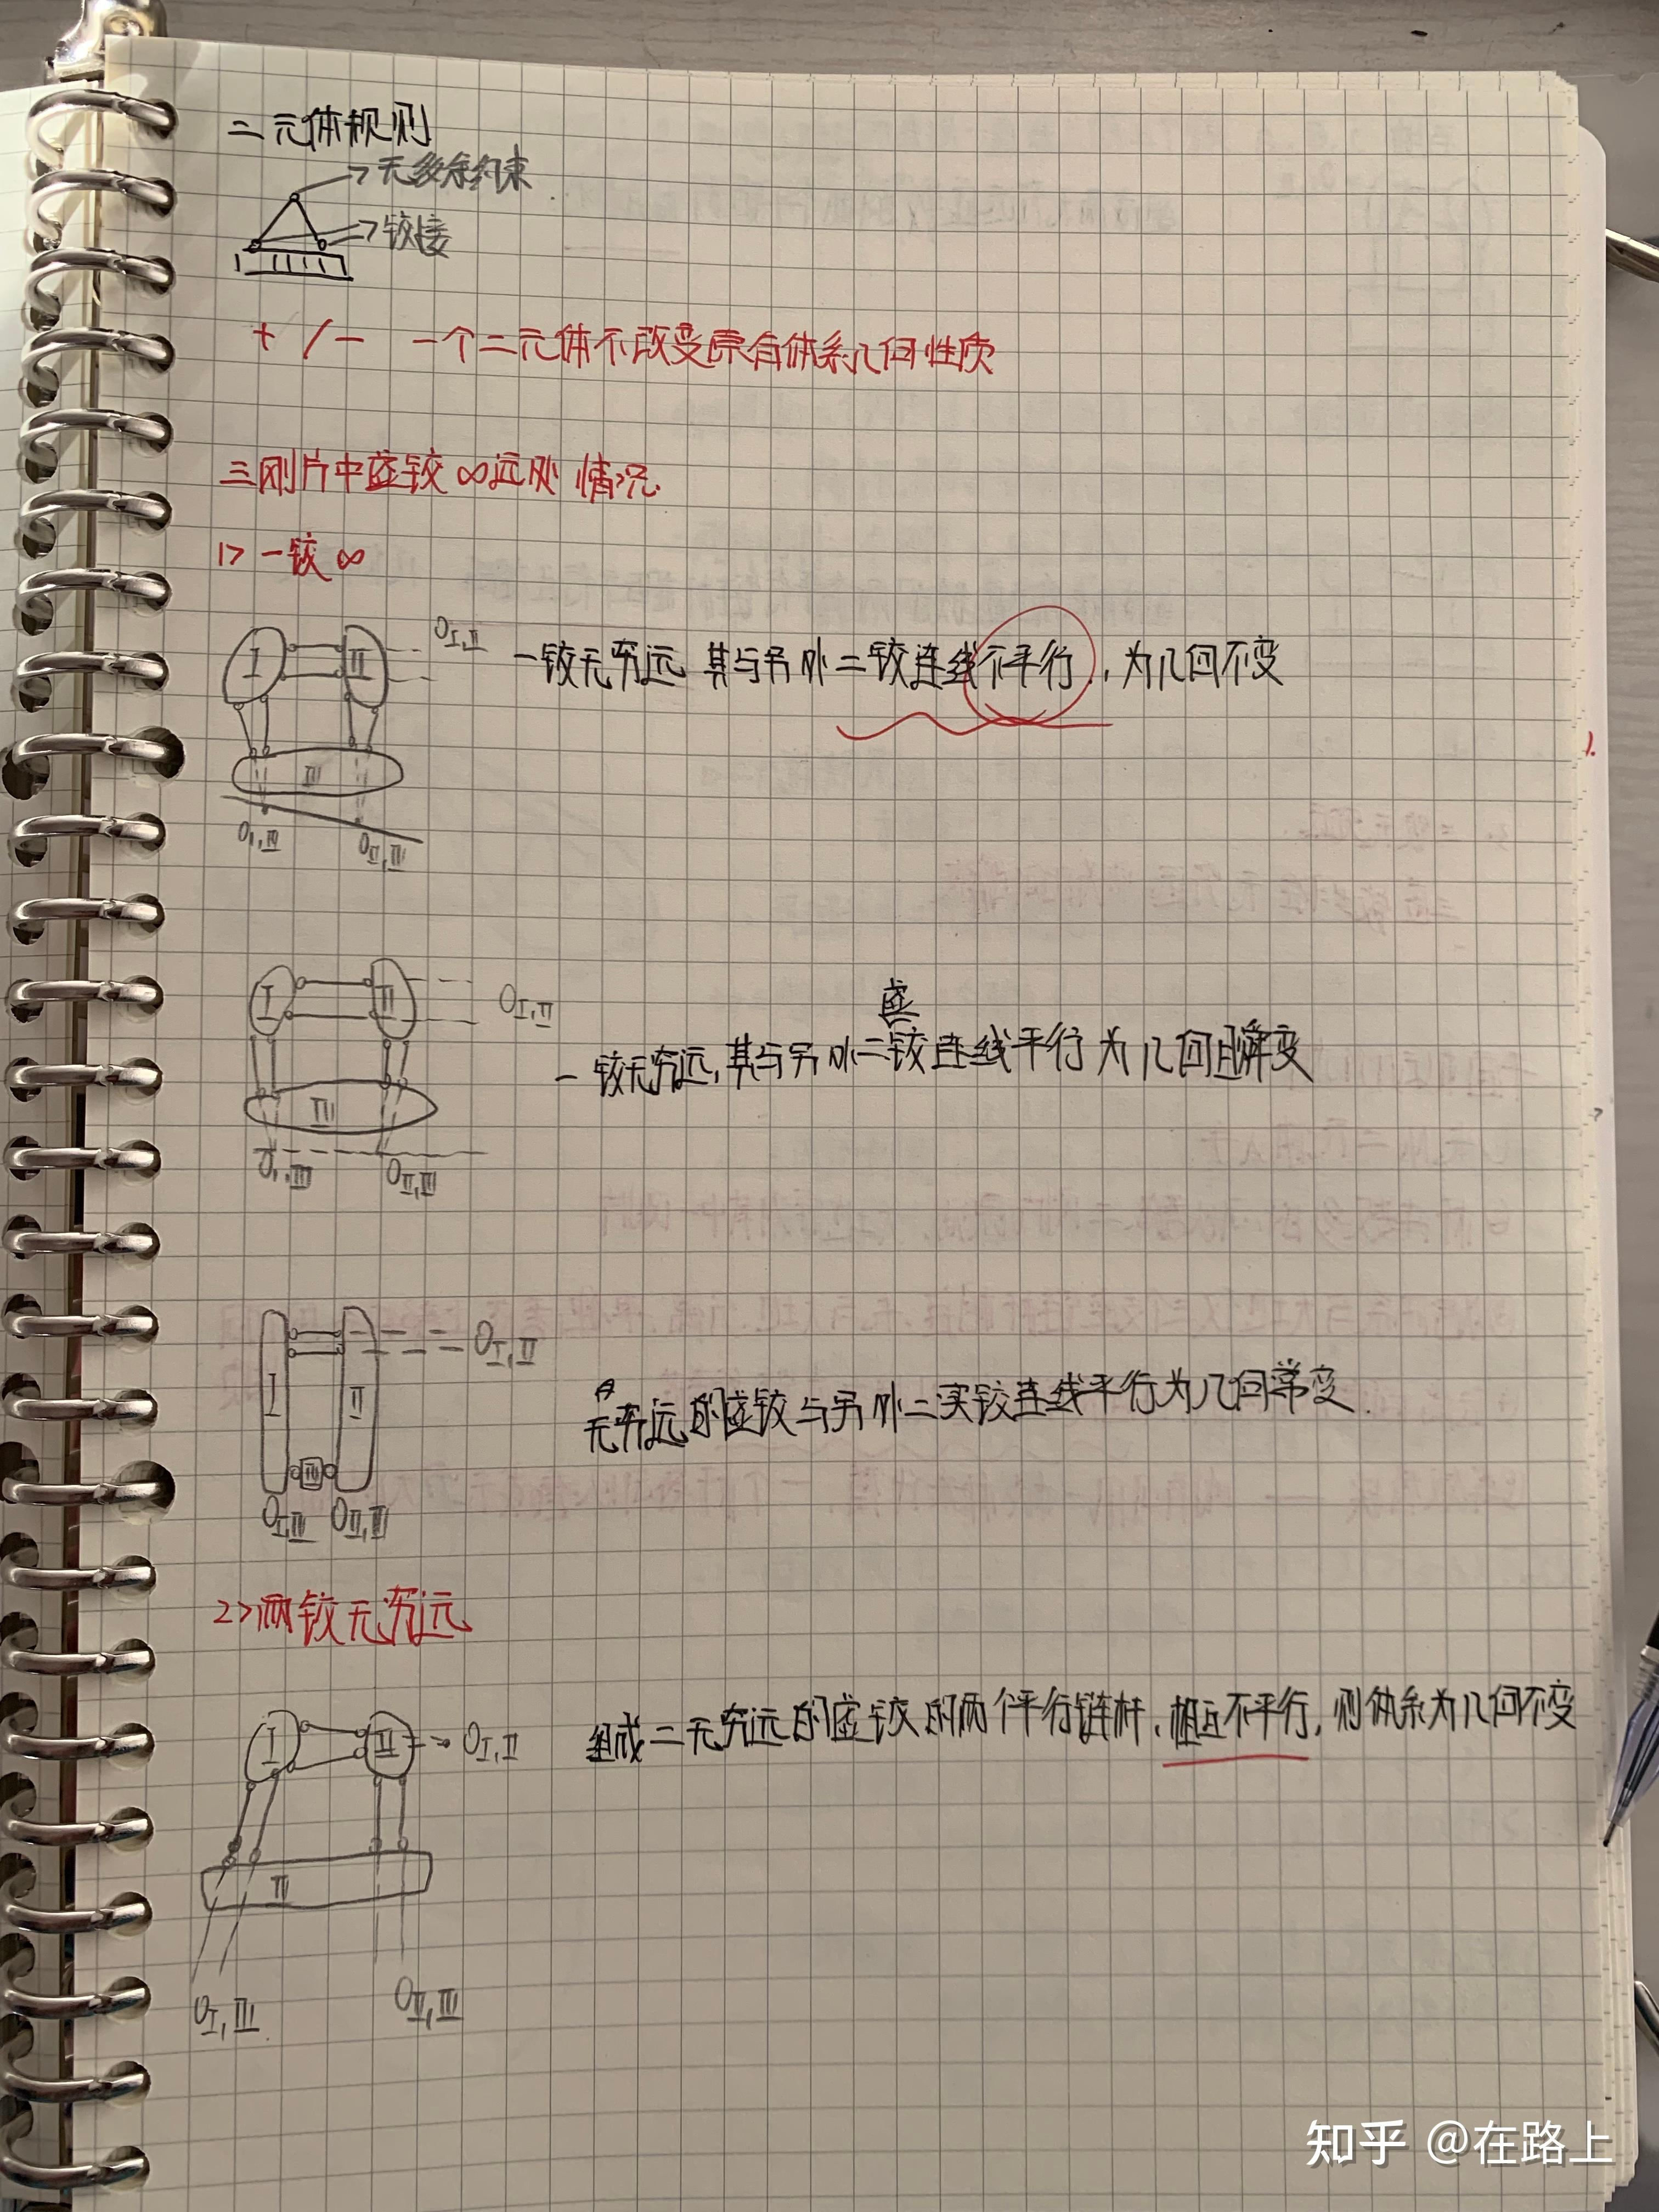 二元体规则
无多余约束
铰接
+ / - 一个二元体不改变原有体系几何性质
三刚片中虚铰∞远处 情况
1> 一铰∞
I II O I,II
一铰无穷远 其与另外二铰连线不平行,为几何不变
III
O I,III O II,III
I II O I,II
虚
一铰无穷远,其与另外二铰连线平行为几何瞬变
III
O I,III O II,III
O I,II
I II
无穷远的虚铰与另外二实铰连线平行为几何常变.
III
O I,III O II,III
2>两铰无穷远
I II O I,II
组成二无穷远的虚铰的两个平行链杆,相互不平行,则体系为几何不变
III
O I,III O II,III
知乎 @在路上